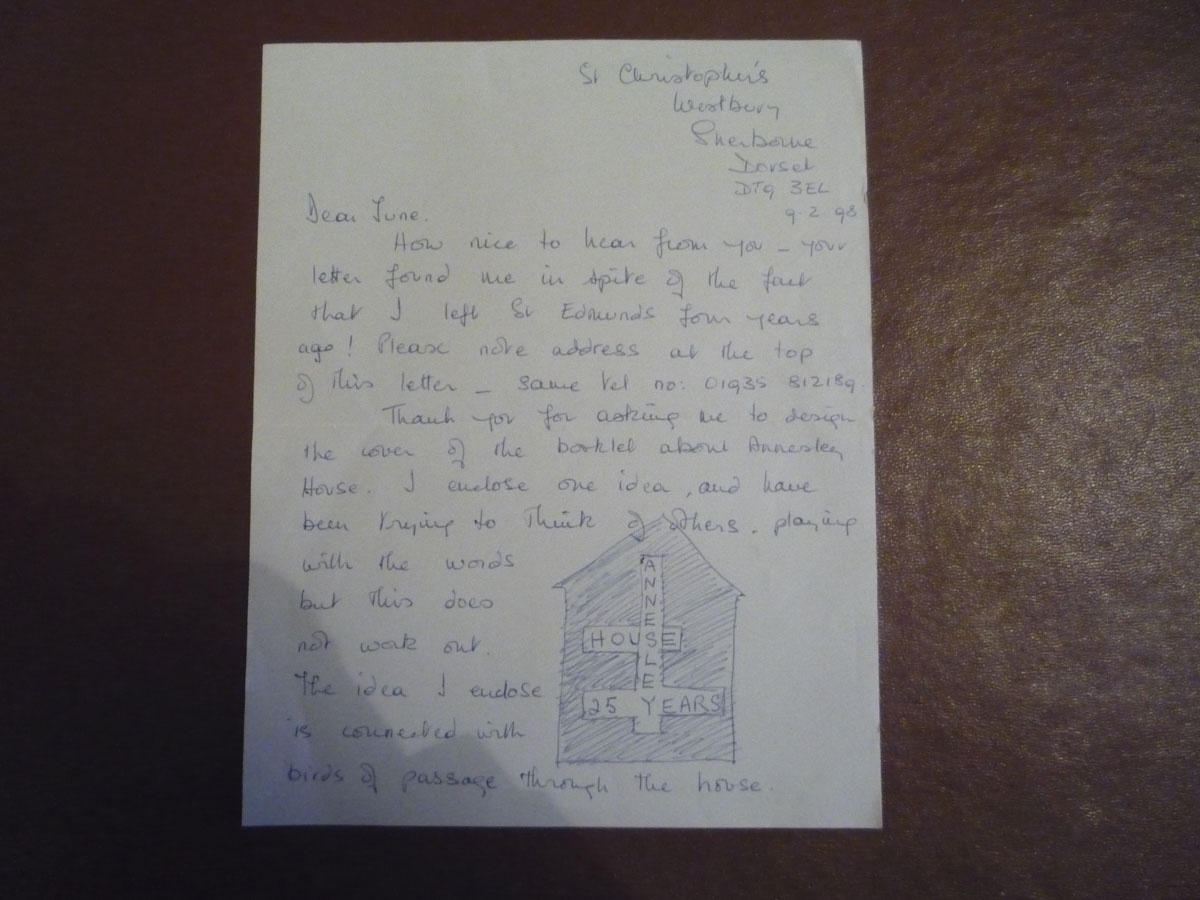 St Christopher's
Westbury
Sherborne
Dorset
DT9 3EL
9-2 98
Dear June.
How nice to hear from you – your
letter found me in spite of the fact
that I left St Edmunds four years
ago! Please note address at the top
of this letter – same tel no: 01935 812189.
Thank you for asking me to design
the cover of the booklet about Annesley
House. I enclose one idea, and have
been trying to think of others. playing
with the words
but this does
not work out.
The idea I enclose
is connected with
birds of passage through the house.
ANNESLEY
HOUSE
25 YEARS